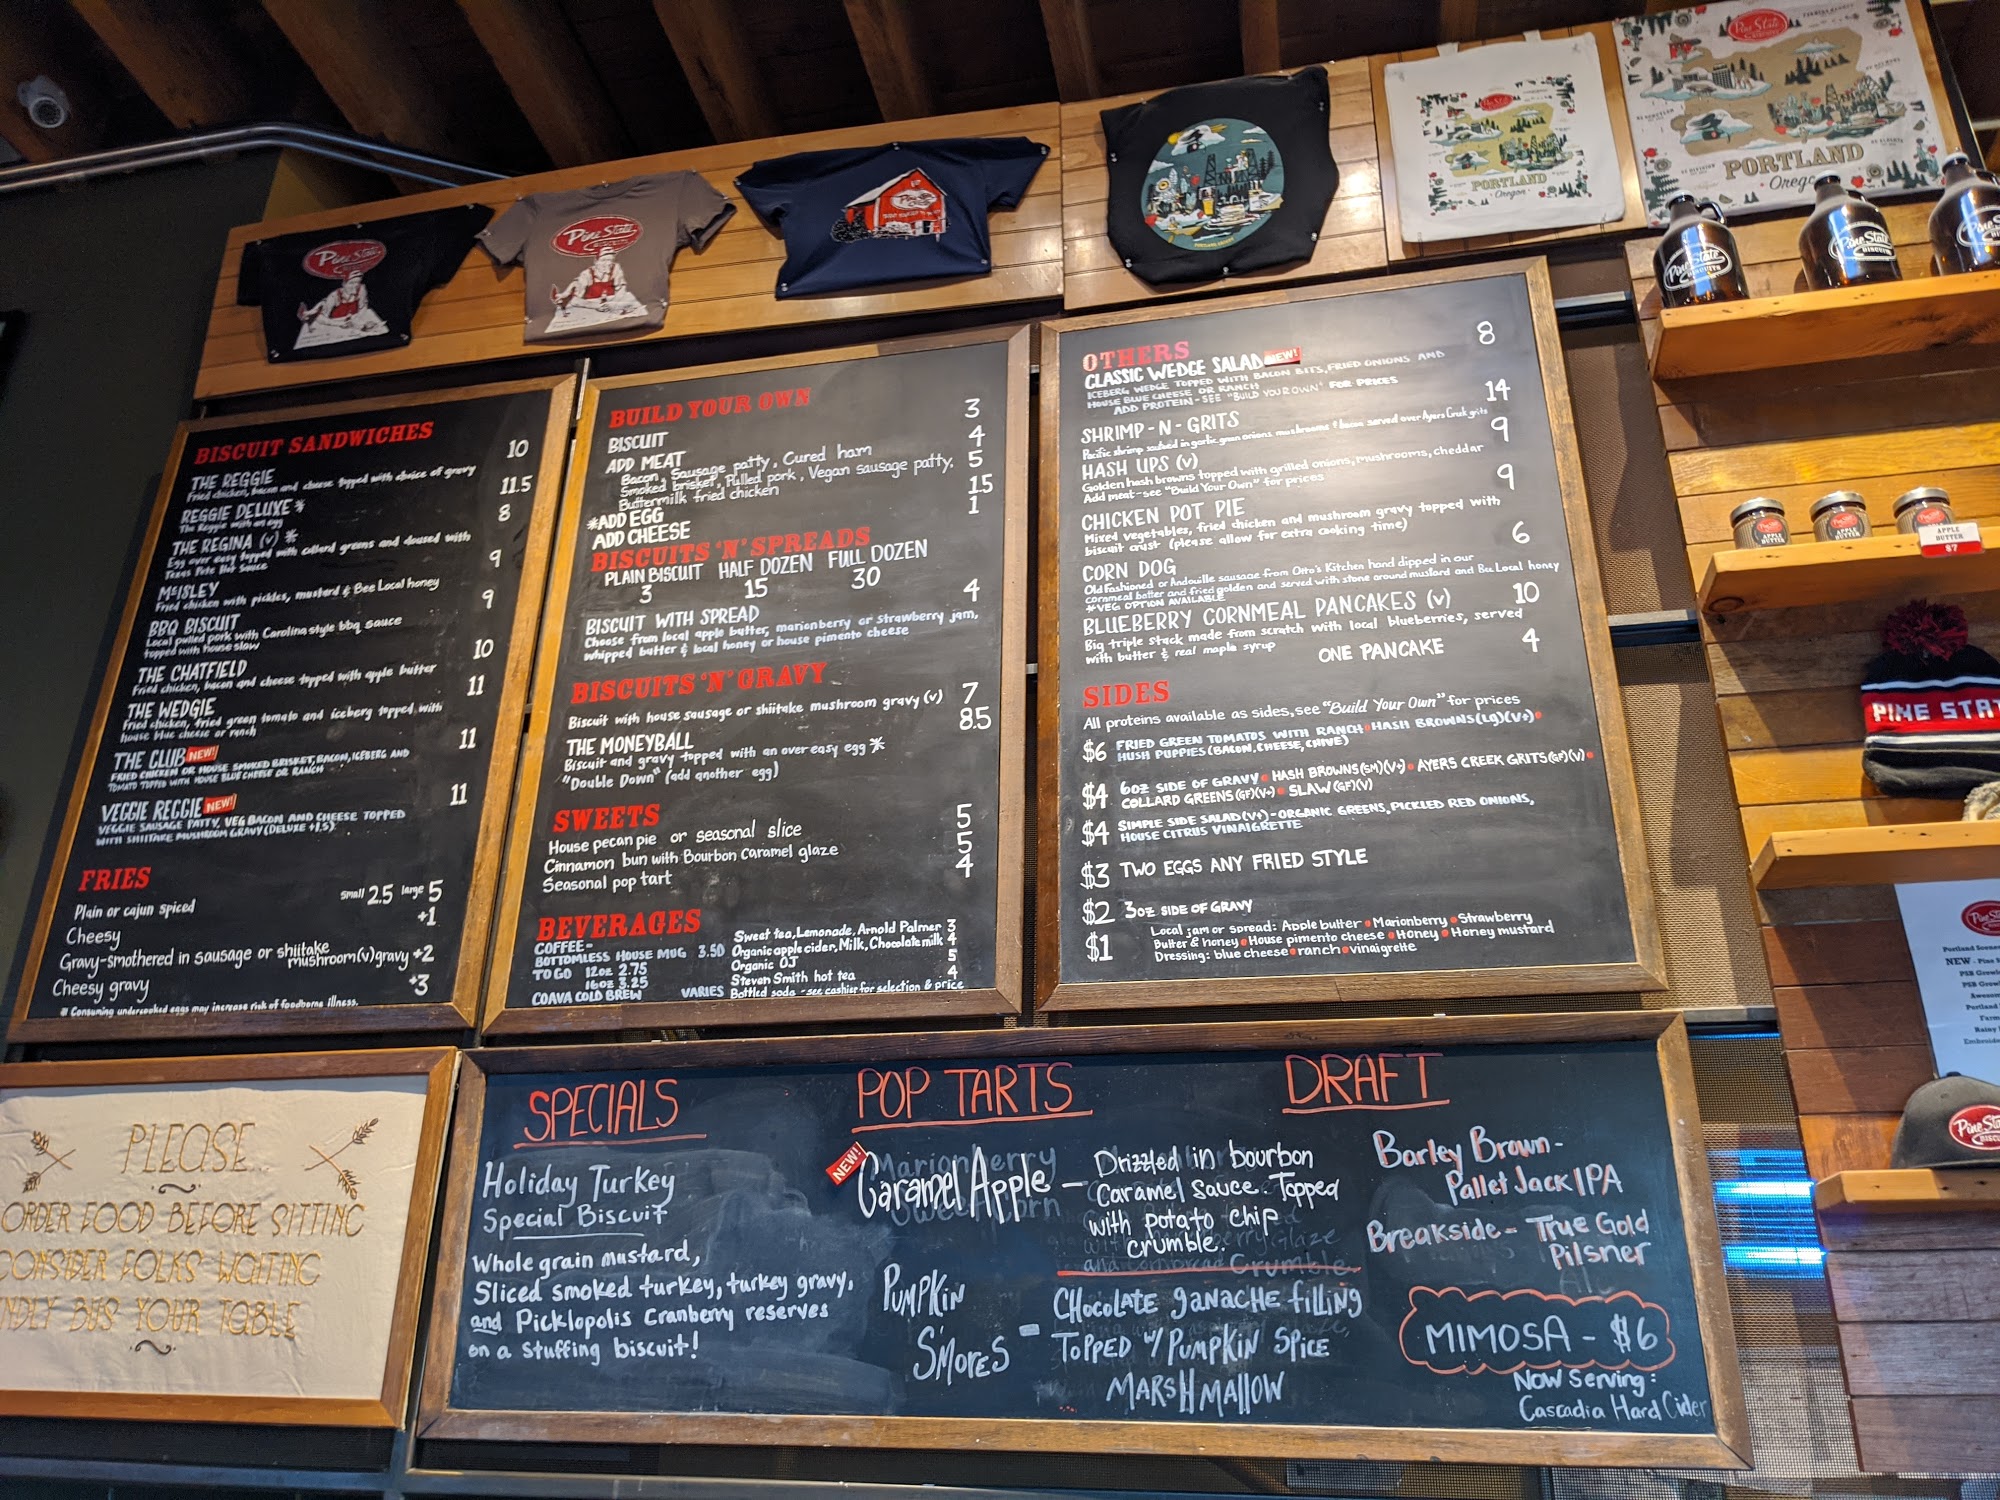 Pine State
BISCUITS
Pine State
BISCUITS
PORTLAND
Oregon
Pine State
PORTLAND
Oregon
Pine State
BISCUITS
Pine State
BISCUITS
Pine State
BISCUIT SANDWICHES
THE REGGIE 10
Fried chicken, bacon and cheese topped with choice of gravy
REGGIE DELUXE * 11.5
The Reggie with an egg
THE REGINA (v) * 8
Egg over easy topped with collard greens and doused with
Texas Pete Hot Sauce
McISLEY 9
Fried chicken with pickles, mustard & Bee Local honey
BBQ BISCUIT 9
Local pulled pork with Carolina style bbq sauce
topped with house slaw
THE CHATFIELD 10
Fried chicken, bacon and cheese topped with apple butter
THE WEDGIE 11
Fried chicken, fried green tomato and iceberg topped with
house blue cheese or ranch
THE CLUB NEW! 11
FRIED CHICKEN OR HOUSE SMOKED BRISKET, BACON, ICEBERG AND
TOMATO TOPPED WITH HOUSE BLUE CHEESE OR RANCH
VEGGIE REGGIE NEW! 11
VEGGIE SAUSAGE PATTY, VEG BACON AND CHEESE TOPPED
WITH SHIITAKE MUSHROOM GRAVY (DELUXE +1.5)
FRIES
Plain or cajun spiced small 2.5 large 5
Cheesy +1
Gravy-smothered in sausage or shiitake
mushroom (v) gravy +2
Cheesy gravy +3
* Consuming undercooked eggs may increase risk of foodborne illness.
BUILD YOUR OWN
BISCUIT 3
ADD MEAT 4
Bacon, Sausage patty, Cured ham
Smoked brisket, Pulled pork, Vegan sausage patty, 5
Buttermilk fried chicken
*ADD EGG 1.5
ADD CHEESE 1
BISCUITS 'N' SPREADS
PLAIN BISCUIT HALF DOZEN FULL DOZEN
3 15 30
BISCUIT WITH SPREAD 4
Choose from local apple butter, marionberry or strawberry jam,
whipped butter & local honey or house pimento cheese
BISCUITS 'N' GRAVY
Biscuit with house sausage or shiitake mushroom gravy (v) 7
THE MONEYBALL 8.5
Biscuit and gravy topped with an over easy egg *
"Double Down" (add another egg)
SWEETS
House pecan pie or seasonal slice 5
Cinnamon bun with Bourbon caramel glaze 5
Seasonal pop tart 4
BEVERAGES
COFFEE-
BOTTOMLESS HOUSE MUG 3.50
TO GO 12oz 2.75
16oz 3.25
COAVA COLD BREW VARIES
Sweet tea, Lemonade, Arnold Palmer 3
Organic apple cider, Milk, Chocolate milk 4
Organic OJ 5
Steven Smith hot tea 4
Bottled soda - see cashier for selection & price
OTHERS
CLASSIC WEDGE SALAD NEW! 8
ICEBERG WEDGE TOPPED WITH BACON BITS, FRIED ONIONS AND
HOUSE BLUE CHEESE OR RANCH
ADD PROTEIN - SEE "BUILD YOUR OWN" FOR PRICES
SHRIMP-N-GRITS 14
Pacific shrimp sauteed in garlic, green onions, mushrooms & bacon served over Ayers Creek grits
HASH UPS (v) 9
Golden hash browns topped with grilled onions, mushrooms, cheddar
Add meat - see "Build Your Own" for prices
CHICKEN POT PIE 9
Mixed vegetables, fried chicken and mushroom gravy topped with
biscuit crust (please allow for extra cooking time)
CORN DOG 6
Old Fashioned or Andouille sausage from Otto's Kitchen hand dipped in our
cornmeal batter and fried golden and served with stone ground mustard and Bee Local honey
*VEG OPTION AVAILABLE
BLUEBERRY CORNMEAL PANCAKES (v) 10
Big triple stack made from scratch with local blueberries, served
with butter & real maple syrup ONE PANCAKE 4
SIDES
All proteins available as sides, see "Build Your Own" for prices
$6 FRIED GREEN TOMATOS WITH RANCH • HASH BROWNS (LG)(V+) •
HUSH PUPPIES (BACON, CHEESE, CHIVE)
$4 6oz SIDE OF GRAVY • HASH BROWNS (SM)(V+) • AYERS CREEK GRITS (GF)(V) •
COLLARD GREENS (GF)(V+) • SLAW (GF)(V)
$4 SIMPLE SIDE SALAD (V+) - ORGANIC GREENS, PICKLED RED ONIONS,
HOUSE CITRUS VINAIGRETTE
$3 TWO EGGS ANY FRIED STYLE
$2 3oz SIDE OF GRAVY
$1 Local jam or spread: Apple butter • Marionberry • Strawberry
Butter & honey • House pimento cheese • Honey • Honey mustard
Dressing: blue cheese • ranch • vinaigrette
APPLE
BUTTER
APPLE
BUTTER
APPLE
BUTTER
$7
PINE STAT
Portland Scenes
NEW - Pine
PSB Growl
PSB Growl
Awesom
Portland
Farm
Rainy
Embroide
Pine Sta
PLEASE...
ORDER FOOD BEFORE SITTING
CONSIDER FOLKS WAITING
NDLY BUS YOUR TABLE
SPECIALS
Holiday Turkey
Special Biscuit
Whole grain mustard,
Sliced smoked turkey, turkey gravy,
and Picklopolis Cranberry reserves
on a stuffing biscuit!
POP TARTS
NEW! Caramel Apple - Drizzled in bourbon
Caramel Sauce. Topped
with potato chip
crumble.
PUMPKIN
S'MORES - CHOCOLATE GANACHE FILLING
TOPPED W/ PUMPKIN SPICE
MARSHMALLOW
DRAFT
Barley Brown -
Pallet Jack IPA
Breakside - True Gold
Pilsner
MIMOSA - $6
Now Serving:
Cascadia Hard Cider